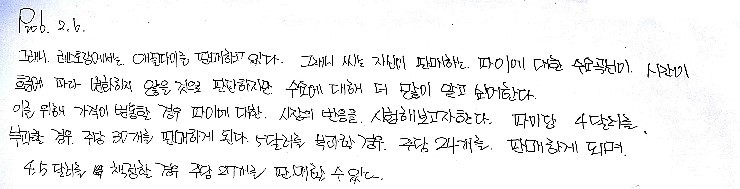 Prob. 2.6.
그래니 레스토랑에서는 애플파이를 판매하고 있다. 그래니 씨는 자신이 판매하는 파이에 대한 수요곡선이 시간이
흐름에 따라 변화하지 않을 것으로 판단하지만 수요에 대해 더 많이 알고 싶어한다.
이를 위해 가격이 변동한 경우 파이에 대한 시장의 반응을 시험해보고자한다. 파이당 4달러를
부과한 경우 주당 30개를 판매하게 된다. 5달러를 부과한 경우 주당 24개를 판매하게 되며,
4.5달러를 책정한 경우 주당 27개를 판매할 수 있다.